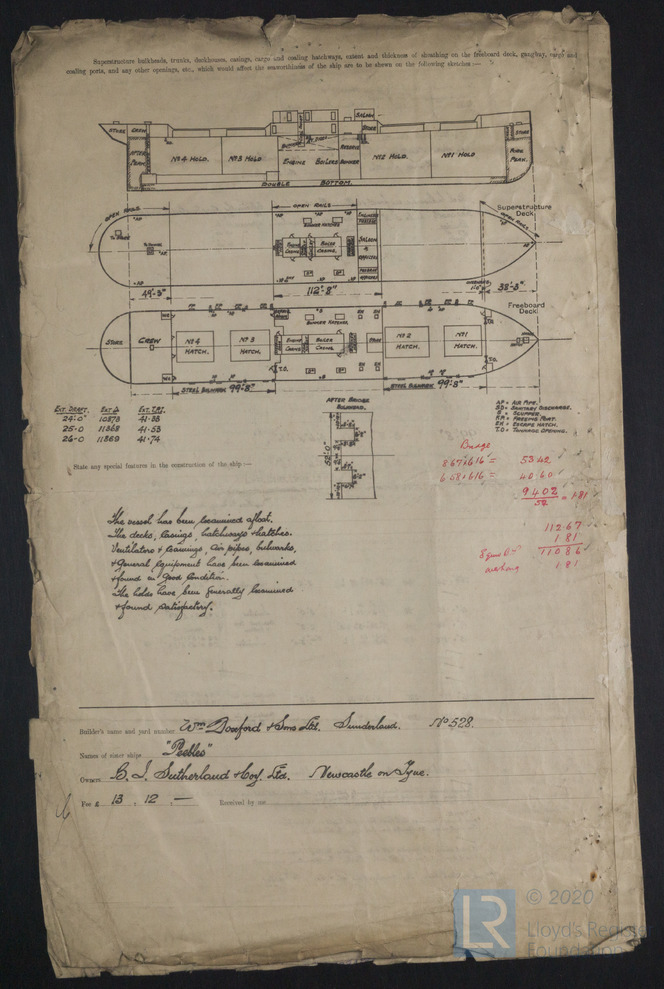 Superstructure bulkheads, trunks, deckhouses, casings, cargo and coaling hatchways, extent and thickness of sheathing on the freeboard deck, gangway, cargo and
coaling ports, and any other openings, etc., which would affect the seaworthiness of the ship are to be shown on the following sketches:—
STORE CREW SALOON STORE STORE
AFTER PEAK No 4 HOLD. No 3 HOLD ENGINE BOILERS RESERVE BUNKER No 2 HOLD. No 1 HOLD PEAK.
DOUBLE BOTTOM.
OPEN RAILS OPEN RAILS Superstructure Deck OPEN RAILS
BUNKER HATCHES
ENGINE CASING BOILER CASING SALOON & OFFICERS
49'-3" 112'-8" 38'-3"
Freeboard Deck
BUNKER HATCHES
STORE CREW No 4 HATCH. No 3 HATCH. ENGINE CASING BOILER CASING No 2 HATCH. No 1 HATCH.
T.O.
STEEL BULWARK 99'-8" STEEL BULWARK 99'-8"
EXT DRAFT. EXT Δ EXT. T.P.I.
24-0" 10873
25-0 11368 41-53
26-0 11869 41-74
AFTER BRIDGE BULKHEAD.
52'-0"
AP = AIR PIPE.
SD = SANITARY DISCHARGE.
S = SCUPPER.
F.P. = FREEING PORT.
EH = ESCAPE HATCH.
T.O = TONNAGE OPENING.
State any special features in the construction of the ship :—
8671616 = 5342
6581616 = 4060
9402
52 = 181
11267
181
11086
181
The vessel has been examined afloat.
The decks, casings, hatchways & hatches.
Ventilators & coamings, air pipes, bulwarks,
& general equipment have been examined
& found in good condition.
The holds have been generally examined
& found satisfactory.
Builder's name and yard number Wm Doxford & Sons Ltd. Sunderland. No 528.
Names of sister ships "Peebles"
Owners B. J. Sutherland & Coy. Ltd. Newcastle on Tyne.
Fee £ 13 : 12 : — Received by me
LR © 2020
Lloyd's Register
Foundation